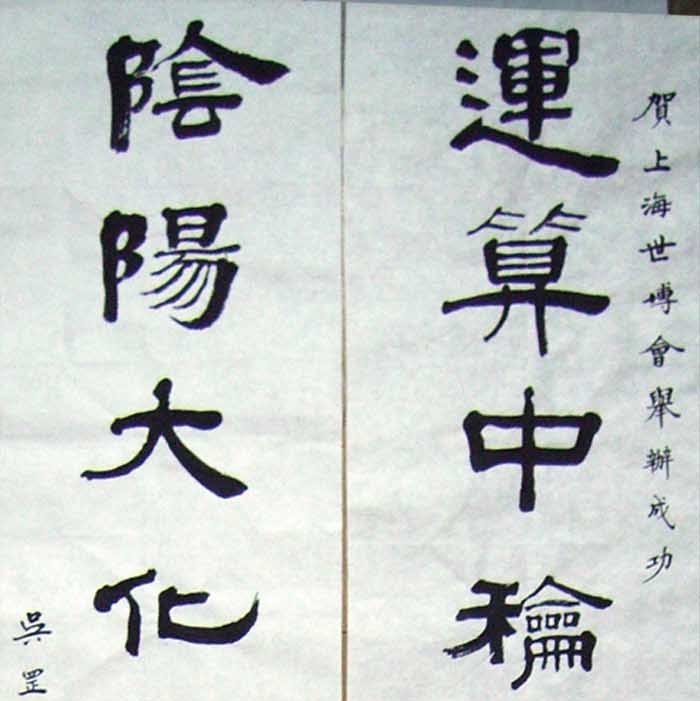 賀上海世博會舉辦成功
運算中龢
陰陽大化
吳罡